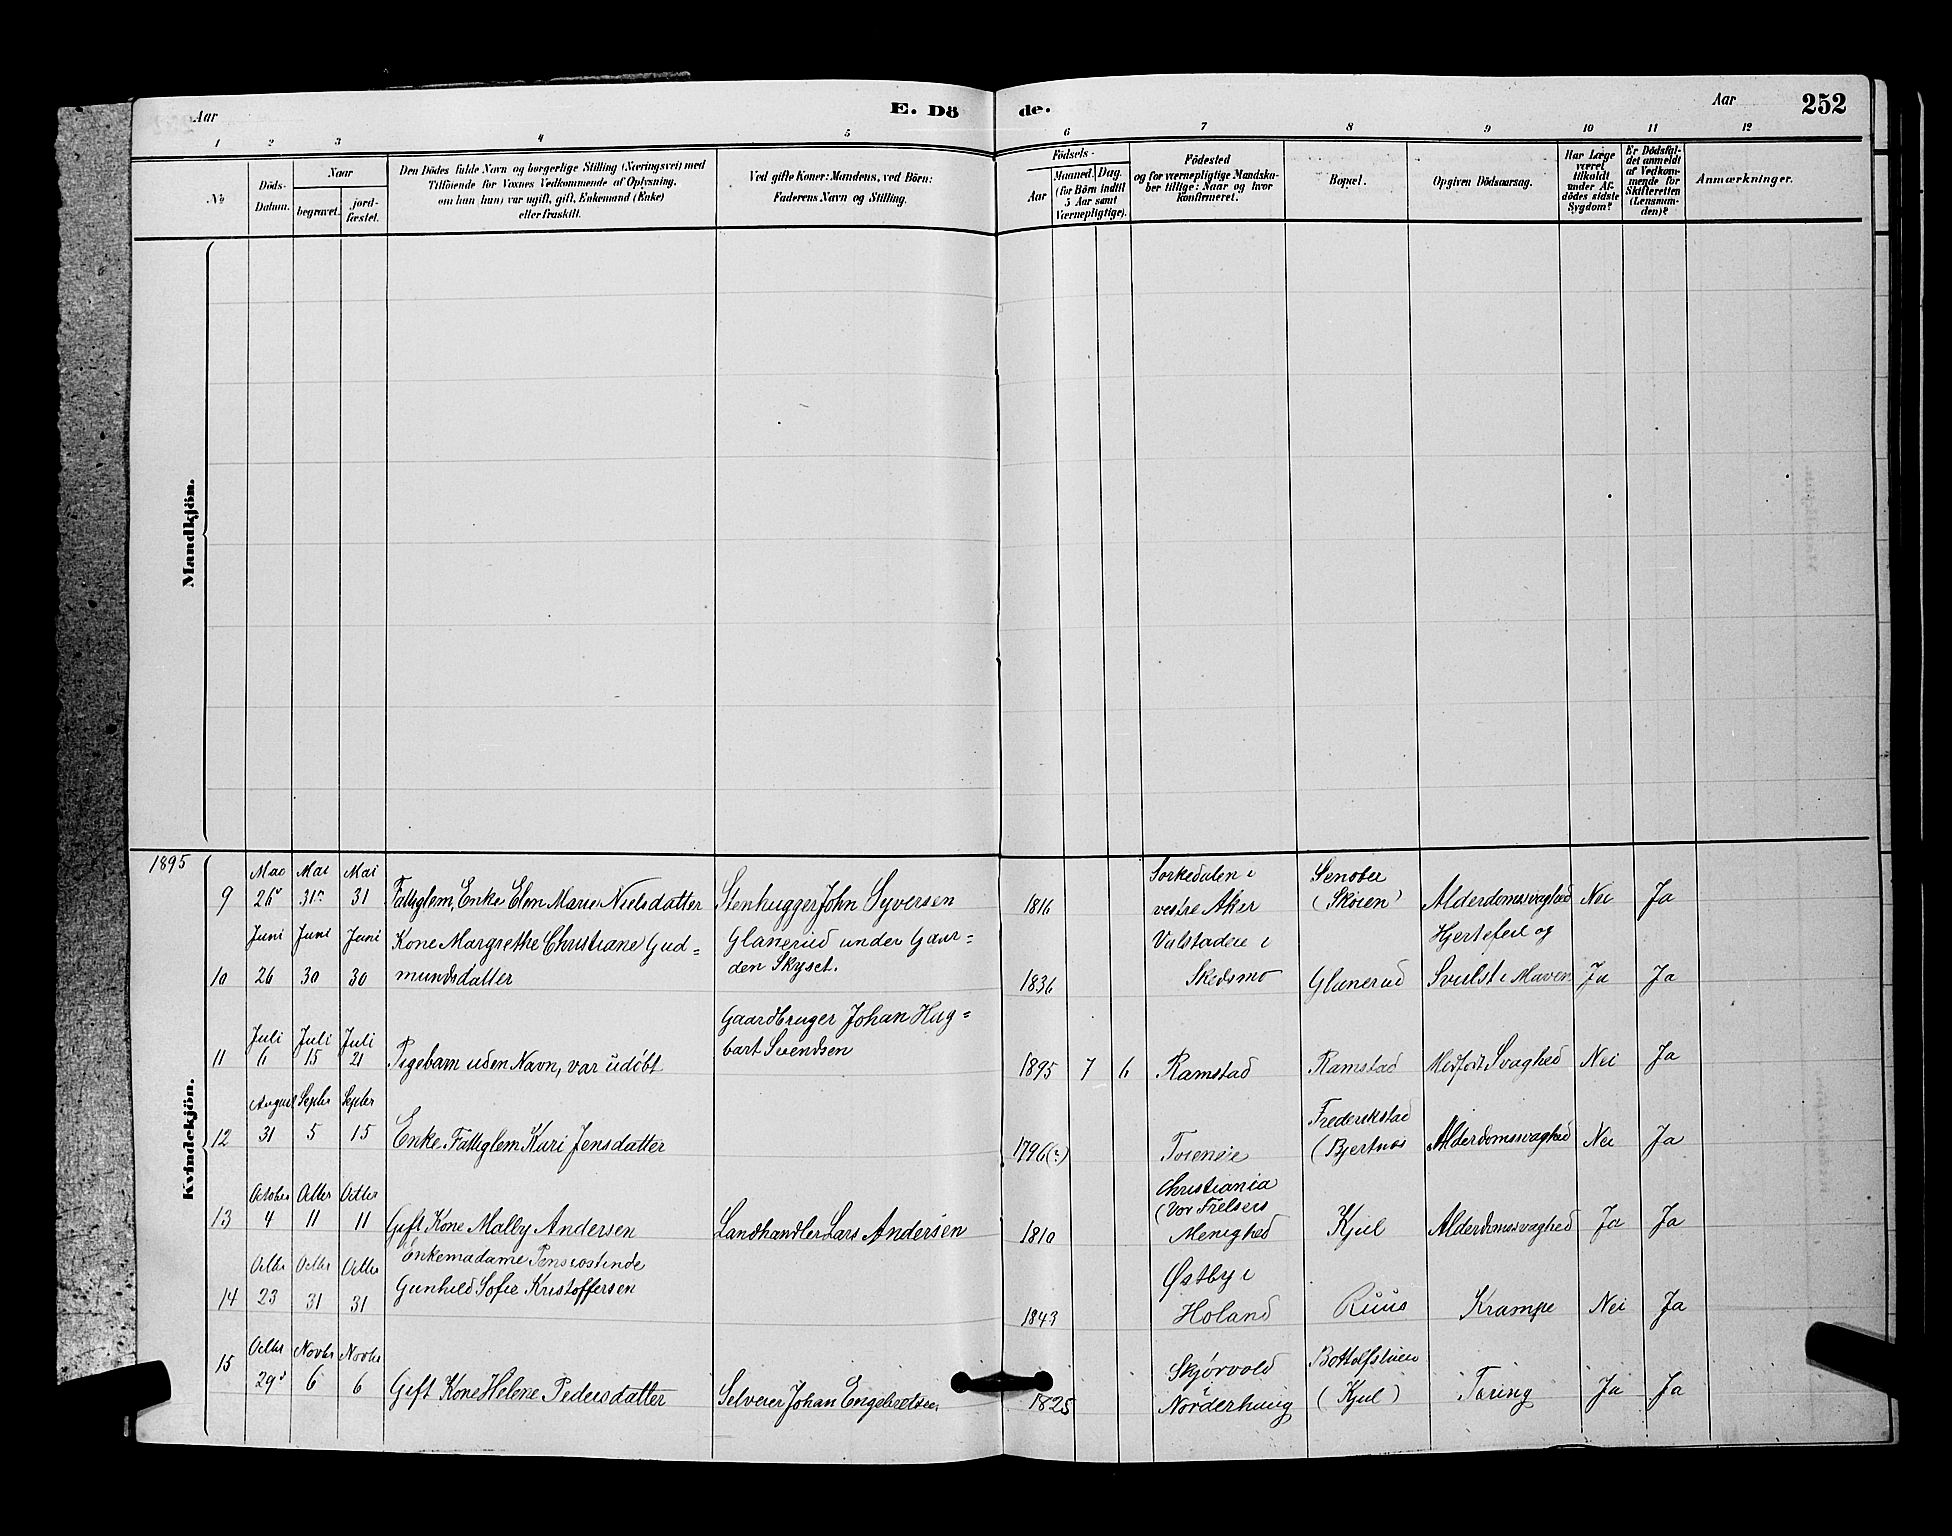 Aar
E. Dö
de.
Aar
252
1 2 3 4 5 6 7 8 9 10 11 12
No
Döds-
Datum.
Naar
begravet.
jord-
fæstet.
Den Dödes fulde Navn og borgerlige Stilling (Næringsvei) med
Tilföiende for Voxnes Vedkommende af Oplysning,
om han (hun) var ugift, gift, Enkemand (Enke)
eller fraskilt.
Ved gifte Koner: Mandens, ved Börn:
Faderens Navn og Stilling.
Födsels-
Aar
Maaned. Dag.
(for Börn indtil
5 Aar samt
Værnepligtige).
Födested
og for værnepligtige Mandska-
ber tillige: Naar og hvor
konfirmeret.
Bopæl.
Opgiven Dödsaarsag.
Har Læge
været
tilkaldt
under Af-
dödes sidste
Sygdom?
Er Dödsfal-
det anmeldt
af Vedkom-
mende for
Skifteretten
(Lensman-
den)?
Anmærkninger.
Mandkjön.
Kvindekjön.
1895
Mai Mai
9 26 31 31 Fattiglem, Enke Elen Marie Nielsdatter
Stenhugger John Syversen
1816
Sørkedalen i
vestre Aker
(Skøien)
Alderdomssvaghed
Nei
Ja
Juni Juni Juni
10 26 30 30
Kone Margrethe Christiane Gud=
mundsdatter
Glanerud under Gaar=
den Skyset.
1836
Valstaden i
Skedsmo
Glanerud
Hjertefeil og
Svulst i Maven
Ja
Ja
Juli Juli Juli
11 6 15 21
Pigebarn uden Navn, var udøbt
Gaardbruger Johan Hag=
bart Svendsen
1895 7 6
Ramstad
Ramstad
Medfødt Svaghed
Nei
Ja
August Septbr Septbr
12 31 5 15
Enke, Fattiglem Kari Jensdatter
1796(?)
Toseneie
Frederikstad
(Bjertnæs
Alderdomssvaghed
Nei
Ja
October Octbr Octbr
13 4 11 11
Gift Kone Mally Andersen
Landhandler Lars Andersen
1810
Christiania
(Vor Frelsers
Menighed
Kjul
Alderdomssvaghed
Ja
Ja
Octbr Octbr Octbr
14 23 31 31
Enkemadame Pensiostinde
Gunhild Sofie Kristoffersen
1843
Østby i
Høland
Ruus
Krampe
Nei
Ja
Octbr Novbr Novbr
15 29 6 6
Gift Kone Helene Pedersdatter
Selveier Johan Engebretsen,
1825
Skjørvold
Norderhoug
Bottolfstuen
(Kjul)
Tæring
Ja
Ja